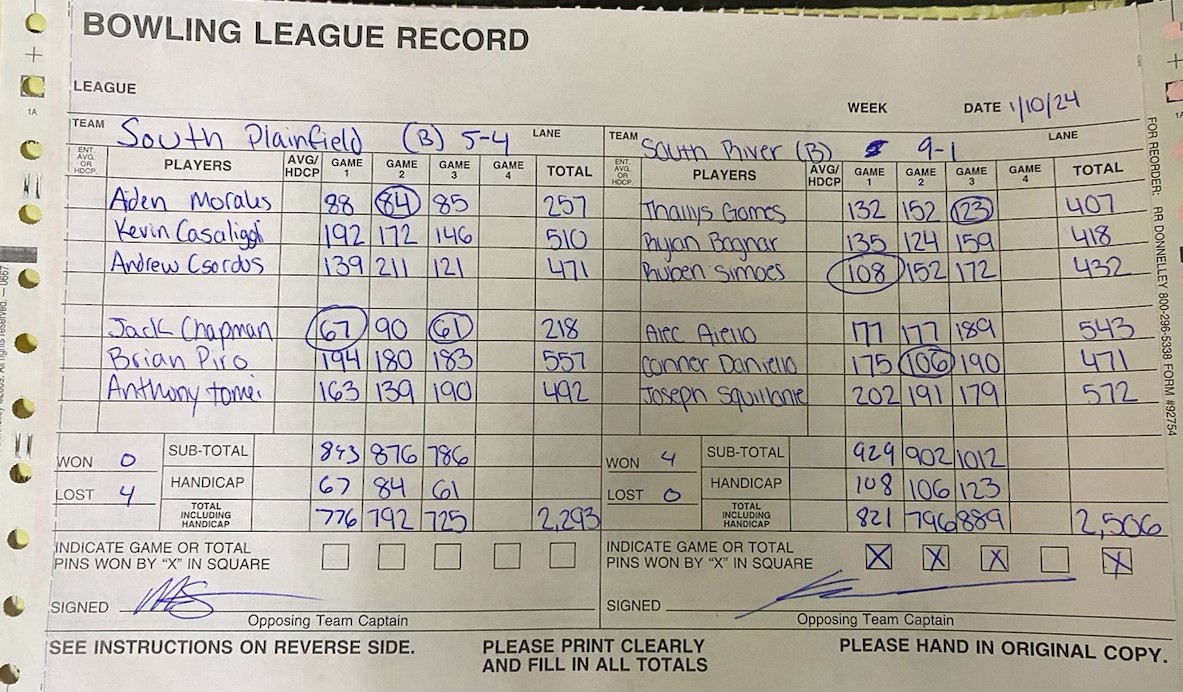 BOWLING LEAGUE RECORD
LEAGUE
WEEK DATE 1/10/24
TEAM South Plainfield (B) 5-4 LANE TEAM South River (B) 9-1 LANE
ENT. AVG. OR HDCP. PLAYERS AVG/ HDCP GAME 1 GAME 2 GAME 3 GAME 4 TOTAL ENT. AVG. OR HDCP. PLAYERS AVG/ HDCP GAME 1 GAME 2 GAME 3 GAME 4 TOTAL
Aiden Morales 88 84 85 257 Thallys Gomes 132 152 123 407
Kevin 192 172 146 510 Ryan Bognar 135 124 159 418
Andrew Csordos 139 211 121 471 Ruben Simoes 108 152 172 432
Jack Chapman 67 90 61 218 Alec Aiello 177 177 189 543
Brian Piro 194 180 183 557 Conner Daniello 175 106 190 471
Anthony Tomei 163 139 190 492 Joseph 202 191 179 572
WON 0 SUB-TOTAL 843 876 786 WON 4 SUB-TOTAL 929 902 1012
LOST 4 HANDICAP 67 84 61 LOST 0 HANDICAP 108 106 123
TOTAL INCLUDING HANDICAP 776 792 725 2,293 TOTAL INCLUDING HANDICAP 821 796 889 2,506
INDICATE GAME OR TOTAL PINS WON BY "X" IN SQUARE INDICATE GAME OR TOTAL PINS WON BY "X" IN SQUARE X X X X
SIGNED SIGNED
Opposing Team Captain Opposing Team Captain
SEE INSTRUCTIONS ON REVERSE SIDE. PLEASE PRINT CLEARLY AND FILL IN ALL TOTALS PLEASE HAND IN ORIGINAL COPY.
FOR REORDER: RR DONNELLEY 800-296-5338 FORM #92754
1A